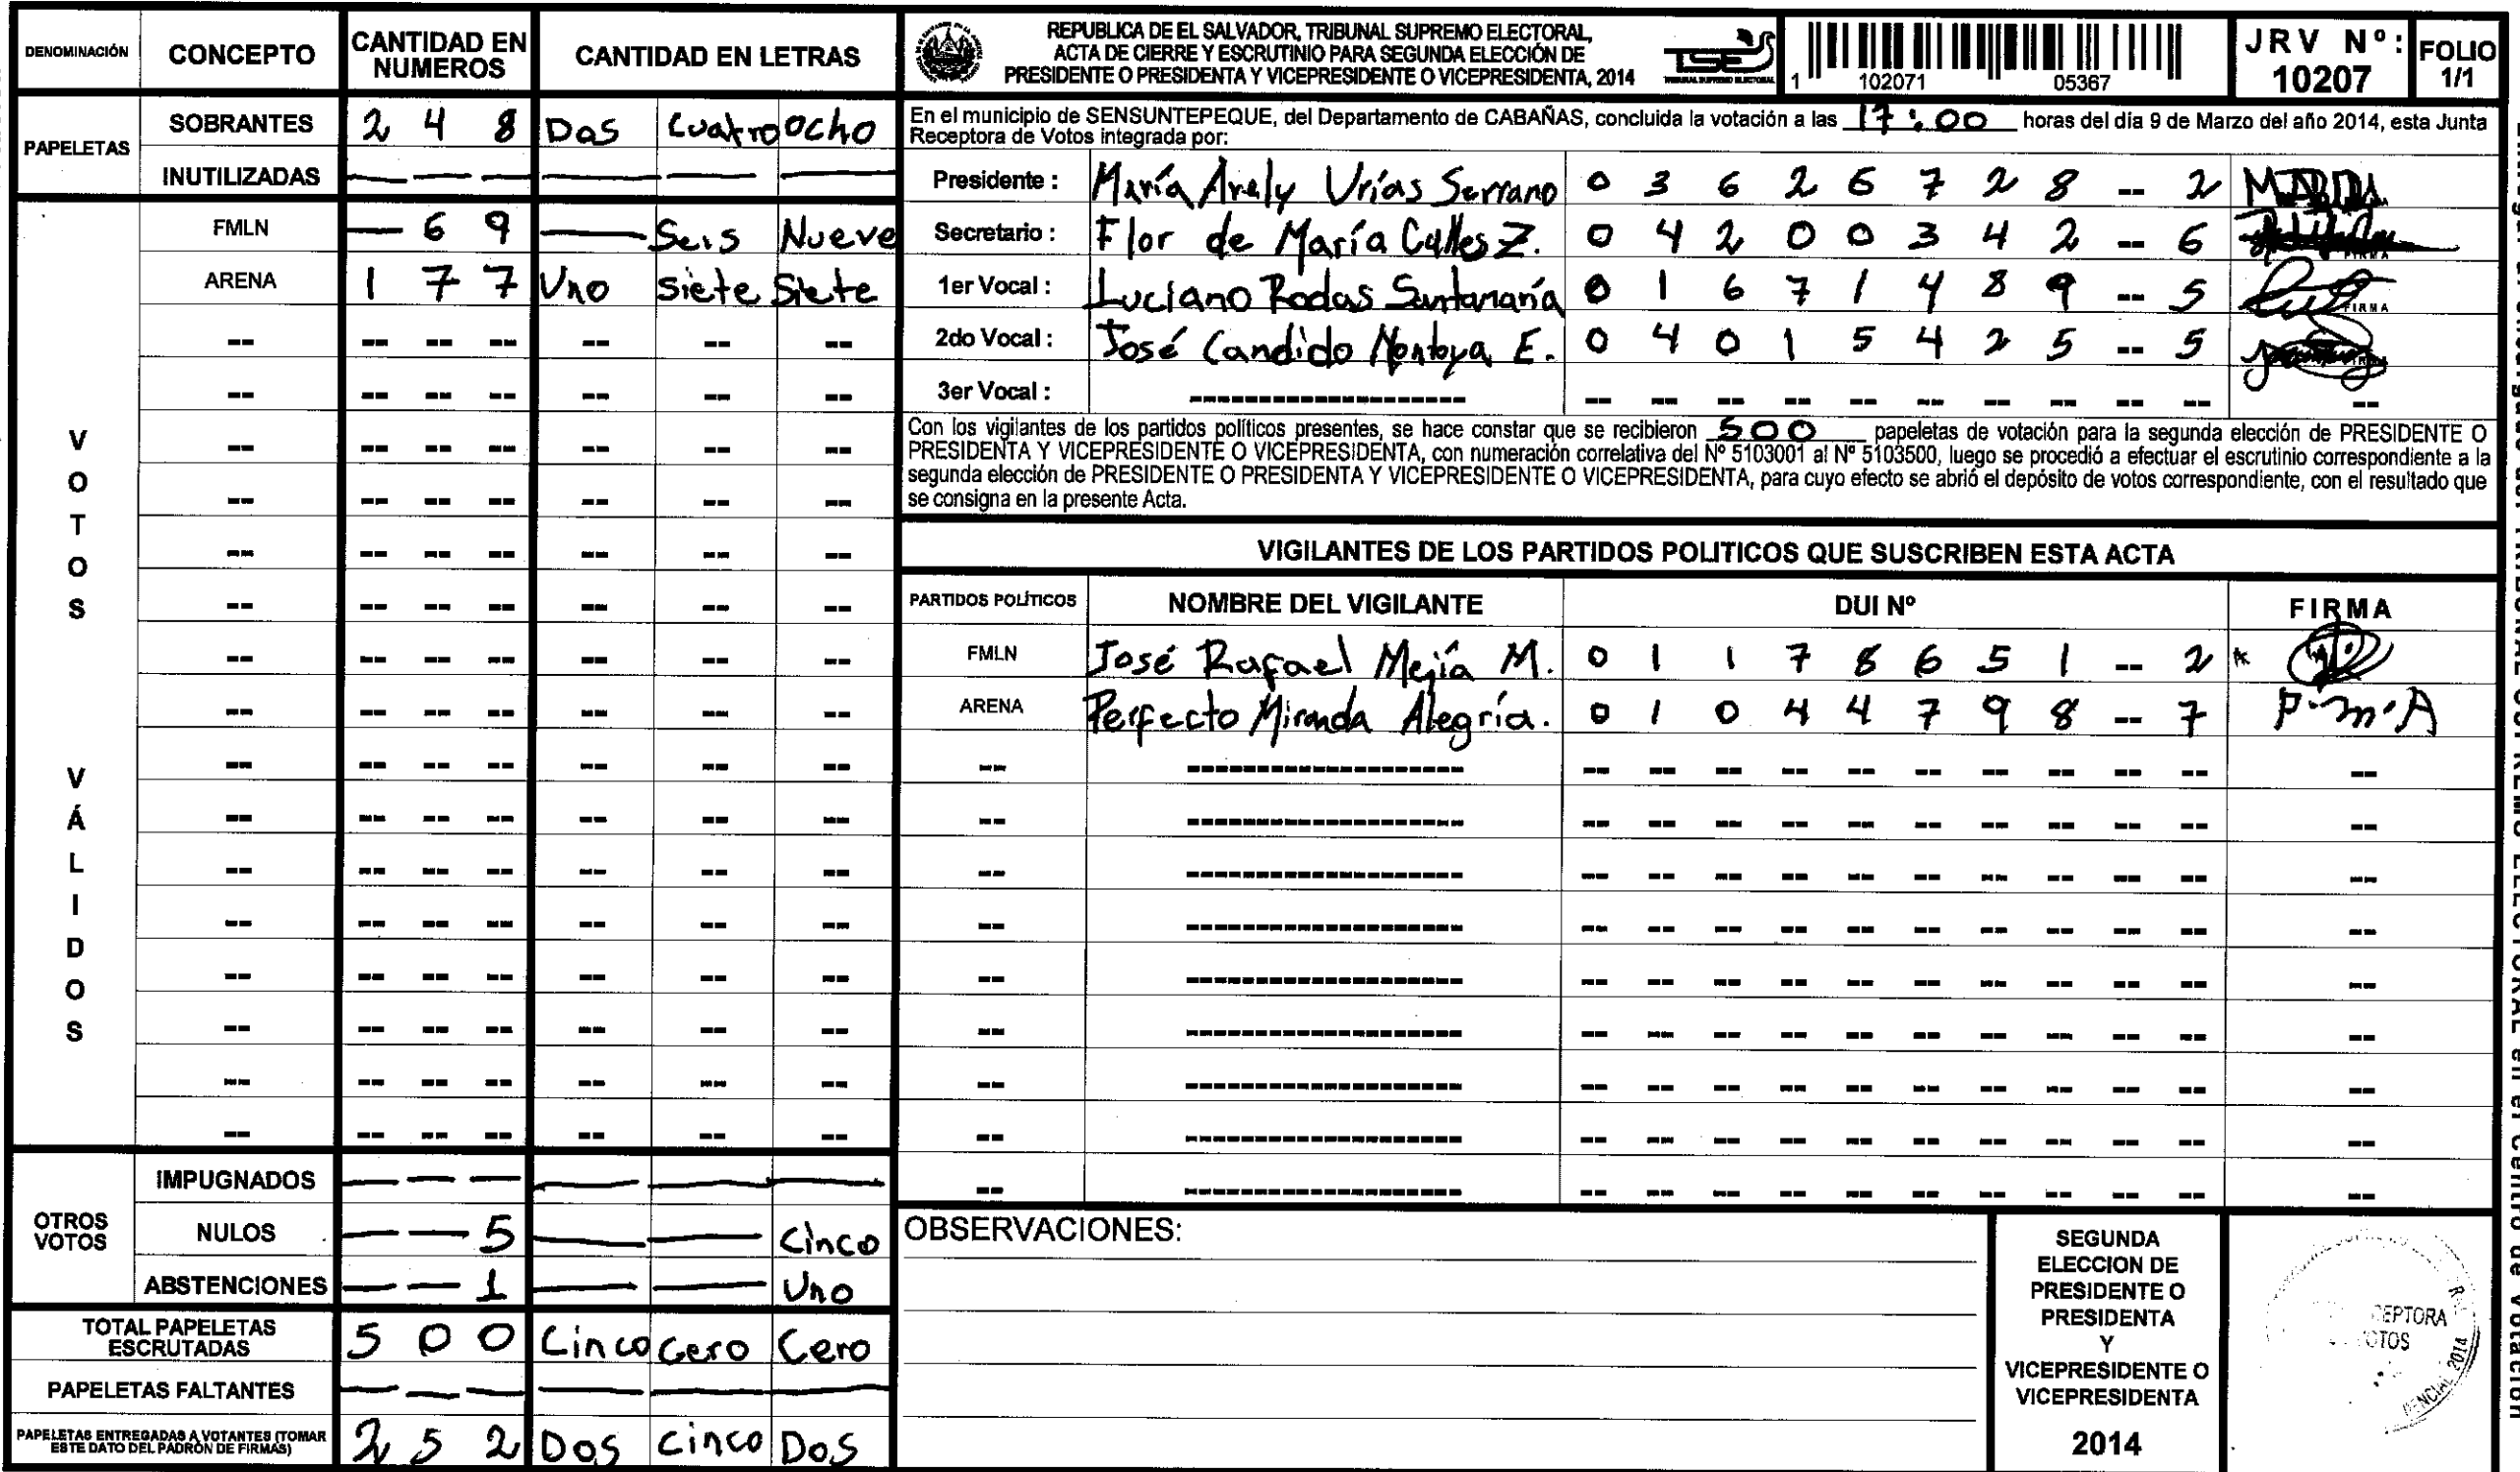 DENOMINACIÓN CONCEPTO CANTIDAD EN NUMEROS CANTIDAD EN LETRAS
PAPELETAS
SOBRANTES 2 4 8 Dos Cuatro Ocho
INUTILIZADAS — — — — — —
VOTOS VÁLIDOS
FMLN — 6 9 — Seis Nueve
ARENA 1 7 7 Uno Siete Siete
OTROS VOTOS
IMPUGNADOS — — — — — —
NULOS — — 5 — — Cinco
ABSTENCIONES — — 1 — — Uno
TOTAL PAPELETAS ESCRUTADAS 5 0 0 Cinco Cero Cero
PAPELETAS FALTANTES — — — — — —
PAPELETAS ENTREGADAS A VOTANTES (TOMAR ESTE DATO DEL PADRÓN DE FIRMAS) 2 5 2 Dos Cinco Dos
REPUBLICA DE EL SALVADOR, TRIBUNAL SUPREMO ELECTORAL,
ACTA DE CIERRE Y ESCRUTINIO PARA SEGUNDA ELECCIÓN DE
PRESIDENTE O PRESIDENTA Y VICEPRESIDENTE O VICEPRESIDENTA, 2014
TSE
TRIBUNAL SUPREMO ELECTORAL
1 102071 05367
JRV Nº: 10207
FOLIO 1/1
En el municipio de SENSUNTEPEQUE, del Departamento de CABAÑAS, concluida la votación a las 17:00 horas del día 9 de Marzo del año 2014, esta Junta
Receptora de Votos integrada por:
Presidente : María Arely Urías Serrano 0 3 6 2 6 7 2 8 -- 2
Secretario : Flor de María Calles Z. 0 4 2 0 0 3 4 2 -- 6 FIRMA
1er Vocal : Luciano Rodas Santamaría 0 1 6 7 1 4 8 9 -- 5 FIRMA
2do Vocal : José Candido Montoya E. 0 4 0 1 5 4 2 5 -- 5
3er Vocal :
Con los vigilantes de los partidos políticos presentes, se hace constar que se recibieron 500 papeletas de votación para la segunda elección de PRESIDENTE O
PRESIDENTA Y VICEPRESIDENTE O VICEPRESIDENTA, con numeración correlativa del Nº 5103001 al Nº 5103500, luego se procedió a efectuar el escrutinio correspondiente a la
segunda elección de PRESIDENTE O PRESIDENTA Y VICEPRESIDENTE O VICEPRESIDENTA, para cuyo efecto se abrió el depósito de votos correspondiente, con el resultado que
se consigna en la presente Acta.
VIGILANTES DE LOS PARTIDOS POLITICOS QUE SUSCRIBEN ESTA ACTA
PARTIDOS POLÍTICOS NOMBRE DEL VIGILANTE DUI Nº FIRMA
FMLN José Rafael Mejía M. 0 1 1 7 8 6 5 1 -- 2
ARENA Perfecto Miranda Alegría. 0 1 0 4 4 7 9 8 -- 7 P.m.A
OBSERVACIONES:
SEGUNDA
ELECCION DE
PRESIDENTE O
PRESIDENTA
Y
VICEPRESIDENTE O
VICEPRESIDENTA
2014
TRIBUNAL SUPREMO ELECTORAL en el Centro de Votación